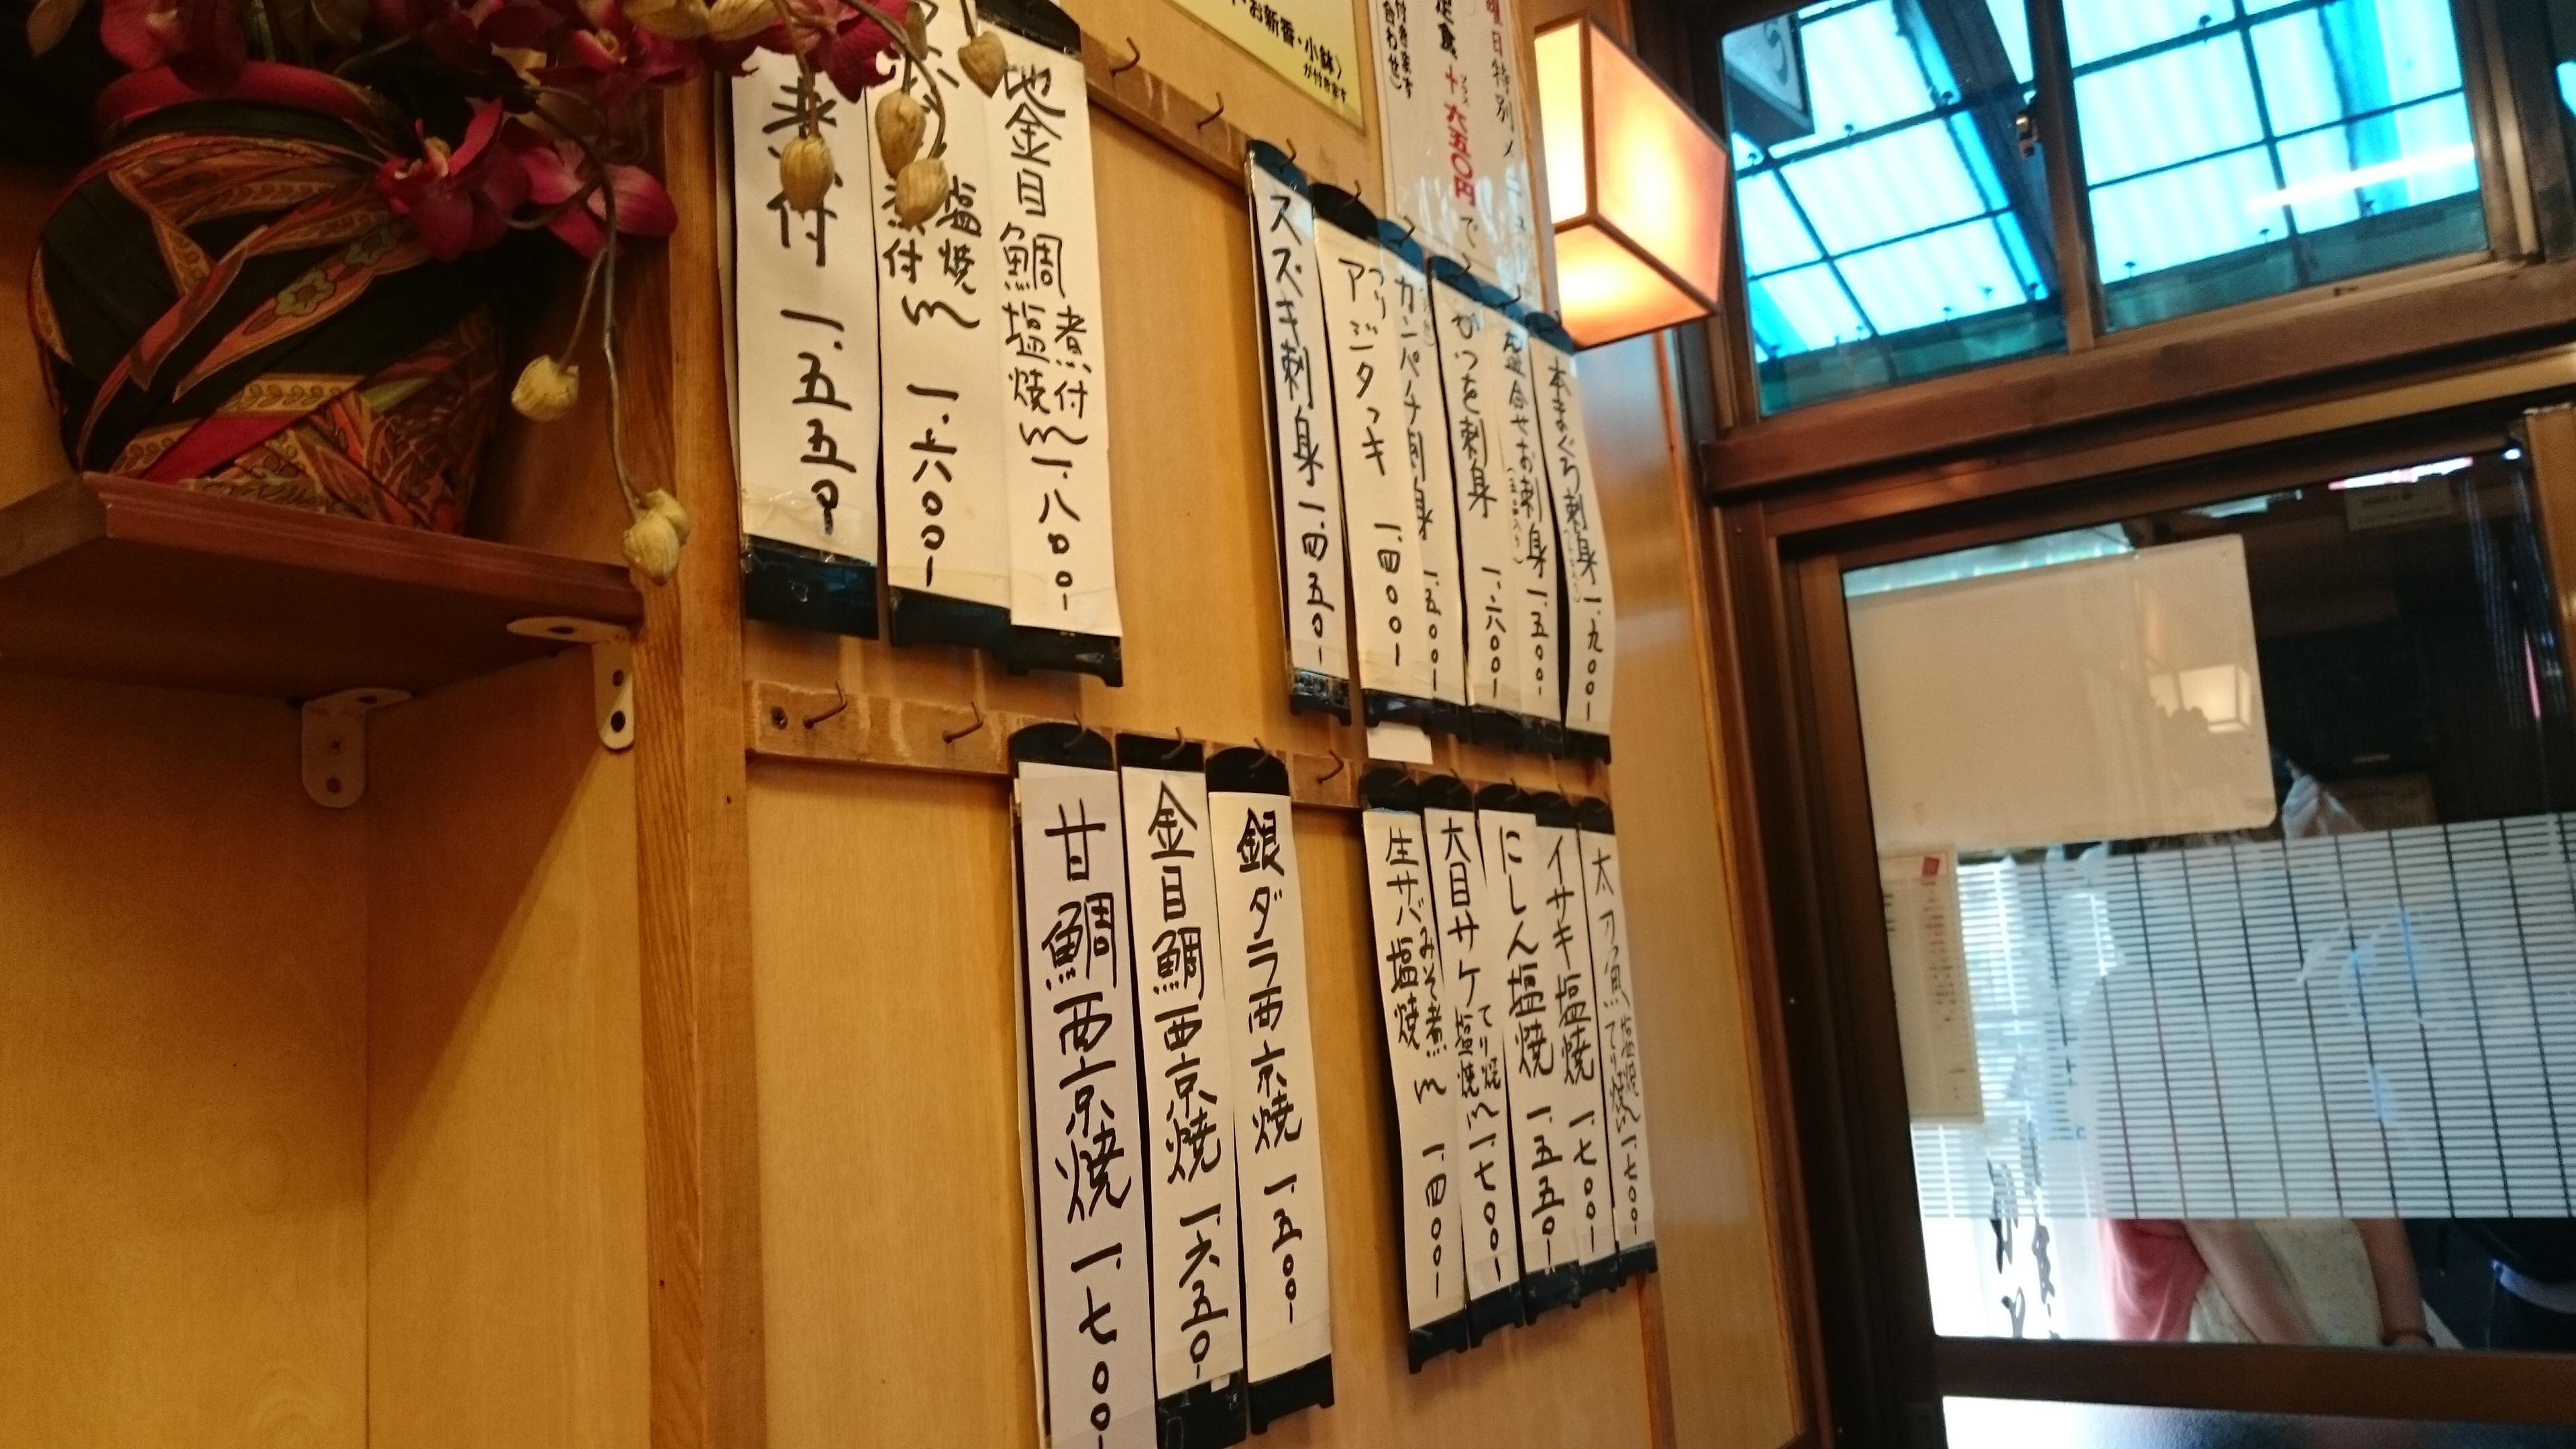 お新香・小鉢)
が付きます
曜日特別メニュー
定食 + 六五〇円 で
付きます
本まぐろ刺身 一.九〇〇-
盛合せお刺身 一.五〇〇-
刺身 一.六〇〇-
カンパチ刺身 一.五〇〇-
アジタタキ 一.四〇〇-
スズキ刺身 一.四五〇-
地金目鯛 煮付 塩焼 一.八〇〇-
塩焼 煮付 一.六〇〇-
煮付 一.五五〇-
太刀魚 塩焼 てり焼 一.七〇〇-
イサキ塩焼 一.七〇〇-
にしん塩焼 一.五五〇-
大目サケ てり焼 塩焼 一.七〇〇-
生サバ みそ煮 塩焼 一.四〇〇-
銀ダラ西京焼 一.五〇〇-
金目鯛西京焼 一.六五〇-
甘鯛西京焼 一.七〇〇-